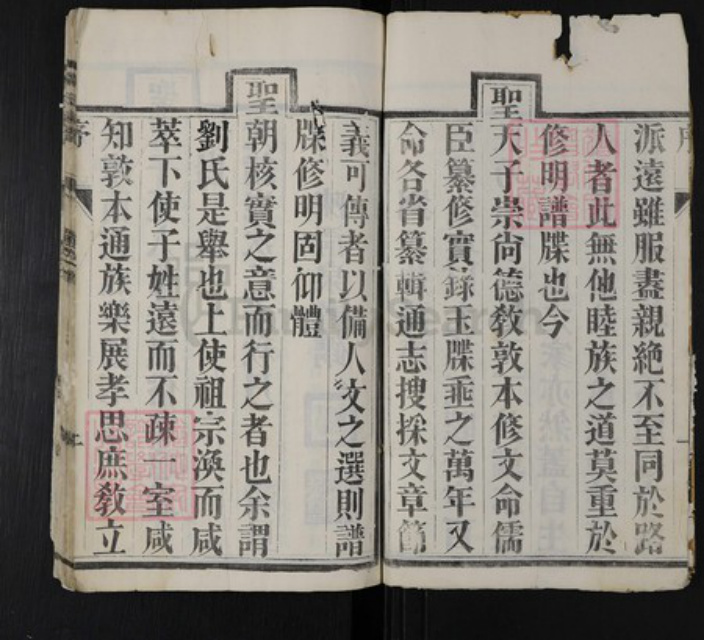 派遠雖服盡親絶不至同於路
人者此無他睦族之道莫重於
修明譜牒也今
聖天子崇尚德教敦本修文命儒
臣纂修實錄玉牒垂之萬年又
命各省纂輯通志搜採文章節
義可傳者以備人文之選則譜
牒修明固仰體
聖朝核實之意而行之者也余謂
劉氏是舉也上使祖宗渙而咸
萃下使子姓遠而不疎一室咸
知敦本通族樂展孝思庶教立
序